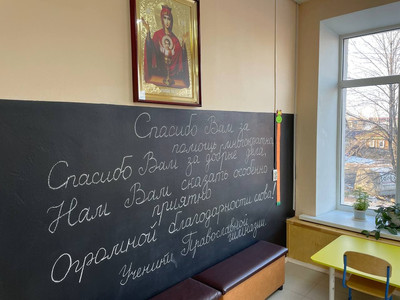 Спасибо Вам за
помощь многократно,
Спасибо Вам за добрые дела,
Нам Вам сказать особенно
приятно
Огромной благодарности слова!
Ученики Православной
гимназии